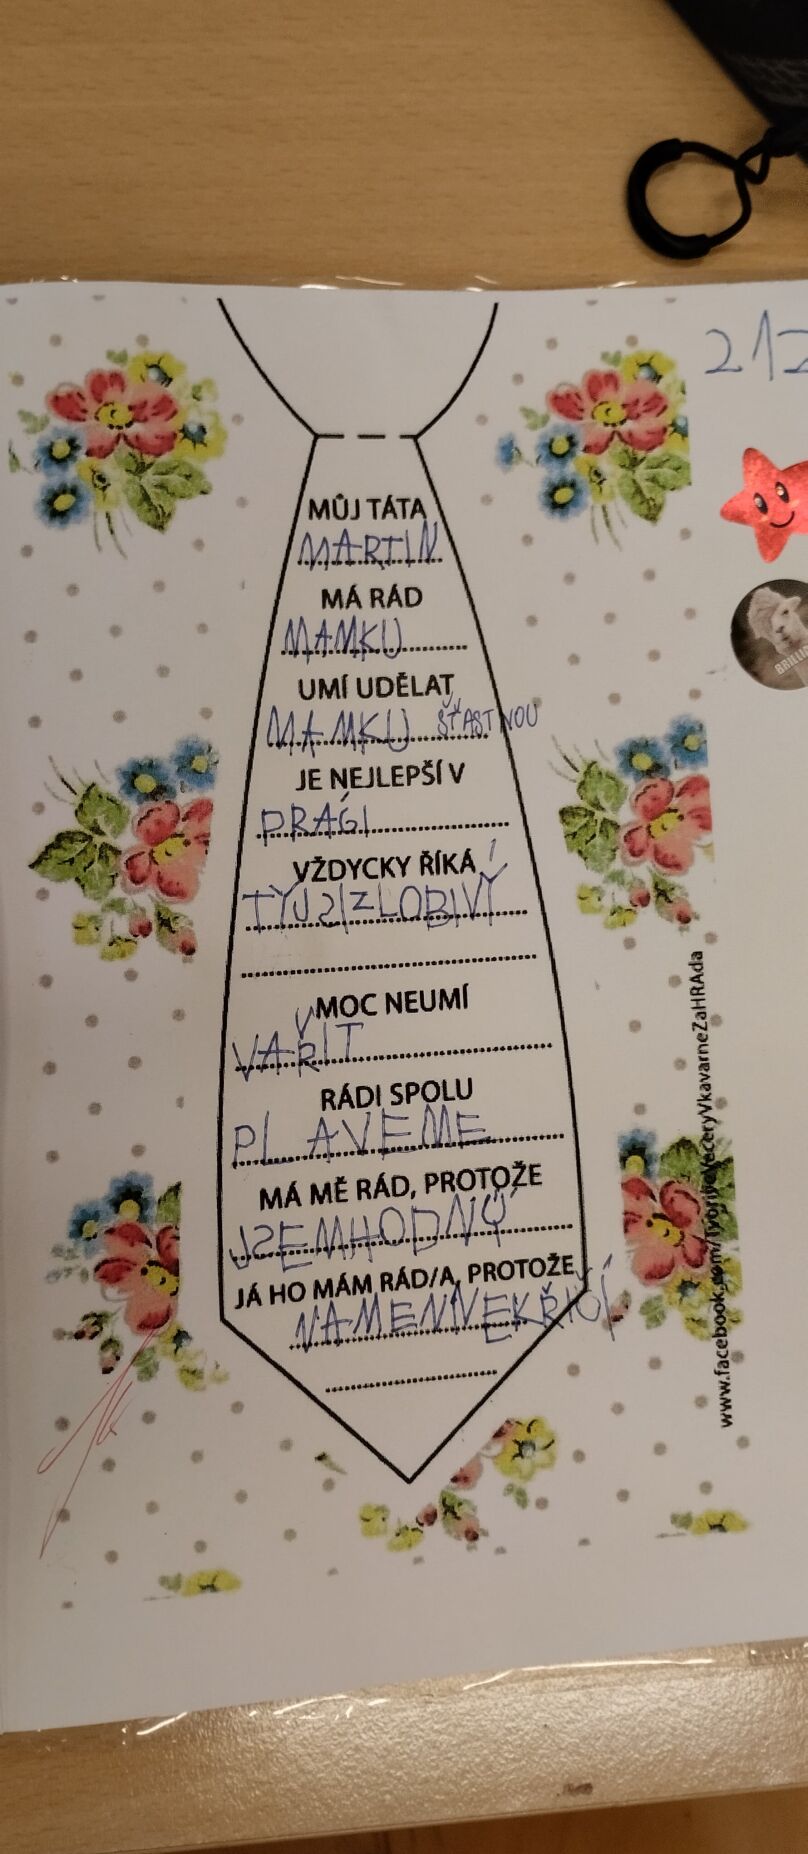 212
MŮJ TÁTA
MARTIN
MÁ RÁD
MAMKU
UMÍ UDĚLAT
MAMKU ŠŤASTNOU
JE NEJLEPŠÍ V
PRÁGI
VŽDYCKY ŘÍKÁ
TYJSIZLOBIVÝ
MOC NEUMÍ
VAŘIT
RÁDI SPOLU
PLAVEME
MÁ MĚ RÁD, PROTOŽE
JSEMHODNÝ
JÁ HO MÁM RÁD/A, PROTOŽE
NAMENNEKŘIČÍ
www.facebook.com/TvoriveVeceryVkavarneZaHRAda